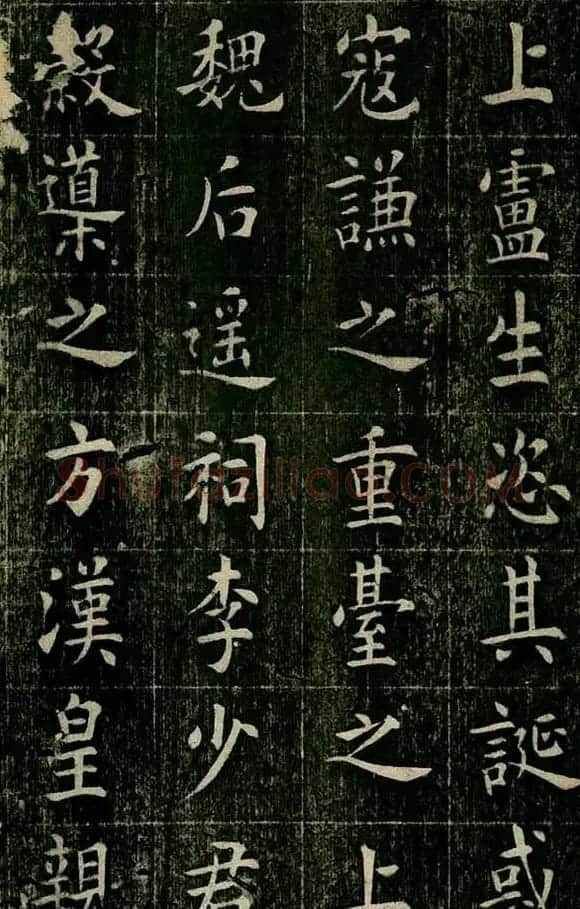 上盧生恣其誕惑
寇謙之重臺之上
魏后遥祠李少君
穀䆃之方漢皇親
Shufaziliao.COM